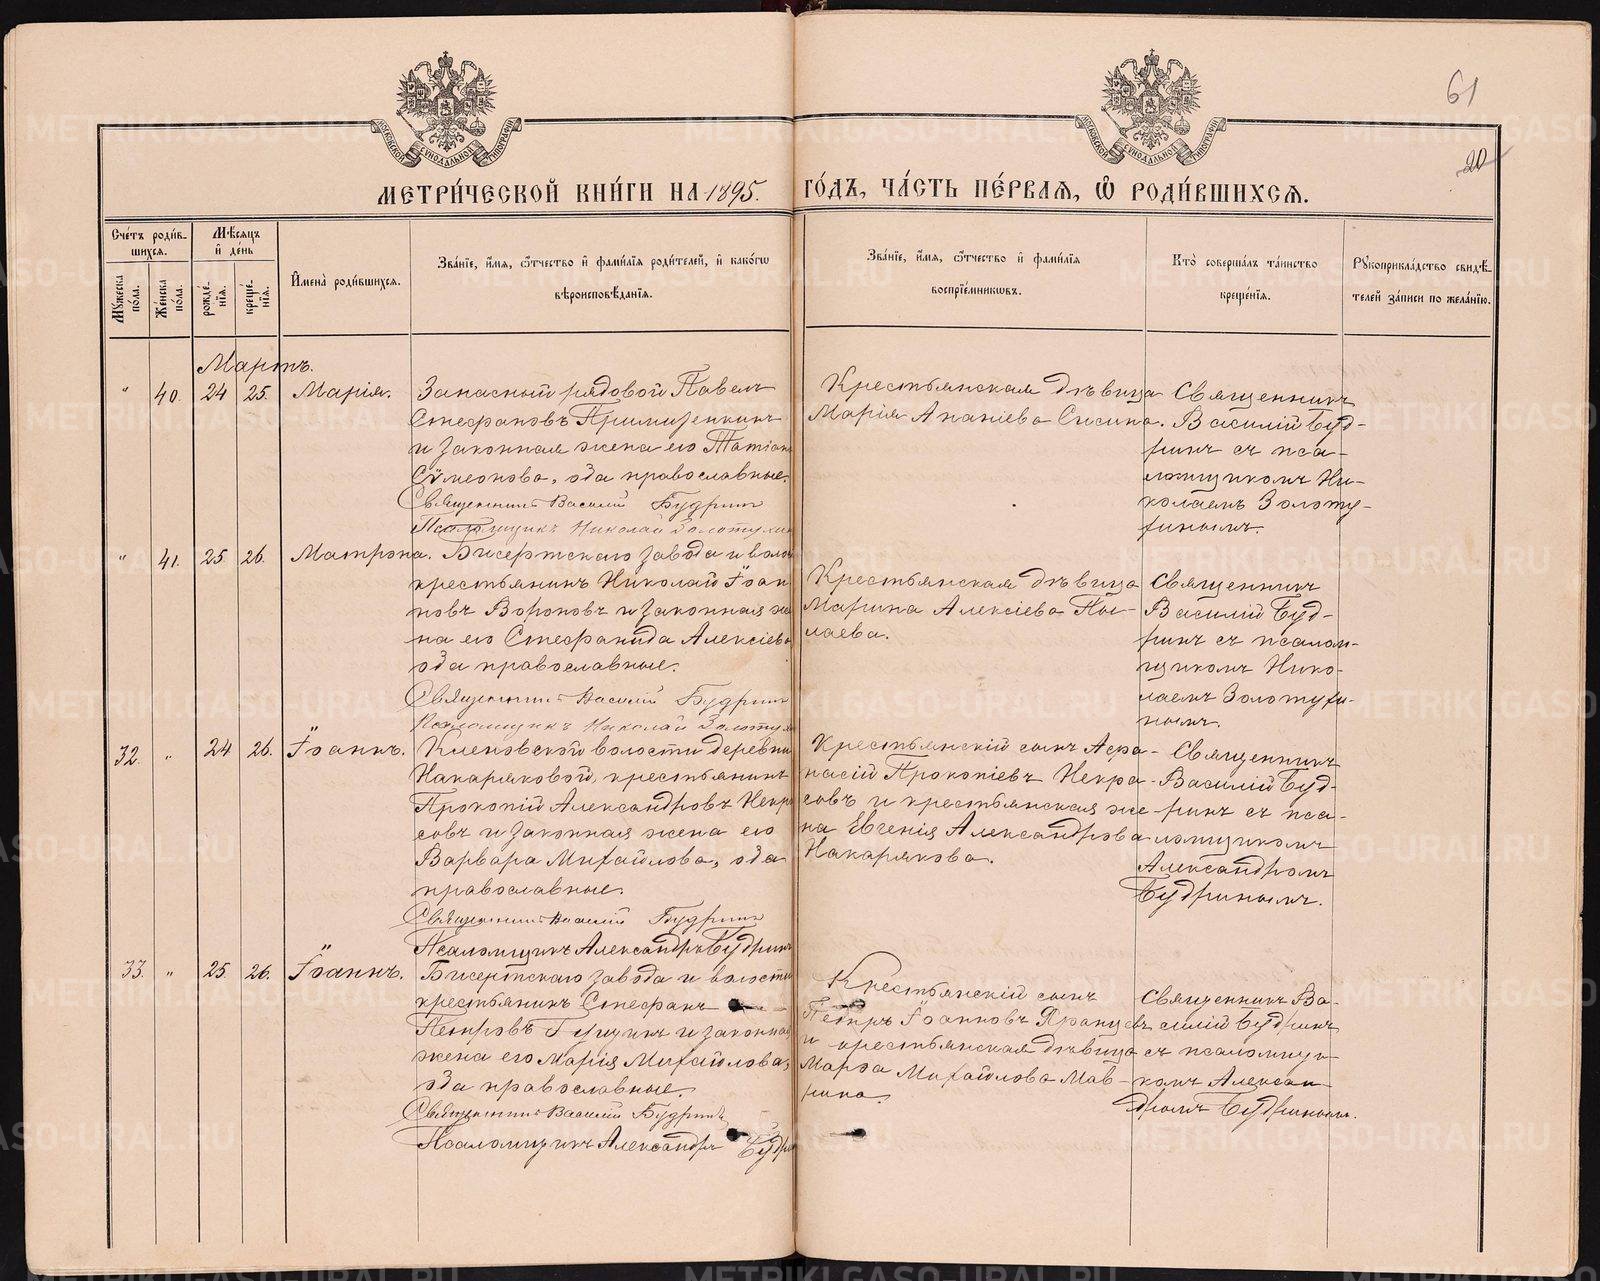 61
20
МЕТРИ́ЧЕСКОЙ КНИ́ГИ НА 1895.
ГО́ДЪ, ЧА́СТЬ ПЕ́РВАЯ, Ѡ РОДИ́ВШИХСЯ.
Сче́тъ роди́в-
шихся.
Мꙋ́жеска по́ла.
Же́нска по́ла.
Мѣ́сяцъ и де́нь
рожде́-нїѧ.
креще́-нїѧ.
Имена̀ роди́вшихся.
Зва́нїе, и́мѧ, ѻ́тчество и фами́лїѧ роди́телей, и како́гѡ
вѣроисповѣ́данїѧ.
Зва́нїе, и́мѧ, ѻ́тчество и фами́лїѧ
воспрїе́мникѡвъ.
Кто̀ соверша́лъ та́инство
креще́нїѧ.
Рꙋкоприкла́дство свидѣ́-
телей за́писи по жела́нїю.
Мартъ.
" 40. 24 25. Марія.
Запасный рядовой Павелъ
Стефановъ
и законная жена его
Сѵмеонова, оба православные.
Священникъ Василій Будринъ
Псаломщикъ Николай
Крестьянская дѣвица
Марія Ананіева Сисина.
Священникъ
Василій Буд-
ринъ съ пса-
ломщикомъ Ни-
колаемъ Золоту-
хинымъ.
" 41. 25 26. Матрона.
Бисертскаго завода и
крестьянинъ Николай Іоан
новъ Вороновъ и законная же
на его Стефанида Алексіева
оба православные.
Священникъ Василій Будринъ
Псаломщикъ Николай
Крестьянская дѣвица
Марина Алексіева
лаева.
Священникъ
Василій Буд-
ринъ съ псалом-
щикомъ Нико-
лаемъ Золотухи-
нымъ.
32. " 24 26. Іоаннъ.
Кленовской волости деревни
Накаряковой, крестьянинъ
Прокопій Александровъ Некра
совъ и законная жена его
Варвара Михайлова, оба
православные.
Священникъ Василій Будринъ
Псаломщикъ Александръ Будринъ
Крестьянскій сынъ Афа-
насій Прокопіевъ Некра-
совъ и крестьянская же
на Евгенія Александрова
Накарякова.
Священникъ
Василій Буд-
ринъ съ пса-
ломщикомъ
Александромъ
Будринымъ.
33. " 25 26. Іоаннъ.
Бисертскаго завода и волости
крестьянинъ Стефанъ
Петровъ и законная
жена его Марія Михайлова,
оба православные.
Священникъ Василій Будринъ
Псаломщикъ Александръ Будри
Крестьянскій сынъ
Петръ Іоанновъ
и крестьянская дѣвица
Марфа Михайлова Мав-
рина.
Священникъ Ва-
силій Будринъ
съ псаломщи-
комъ Алексан-
дромъ Будринымъ.
METRIKI.GASO-URAL.RU